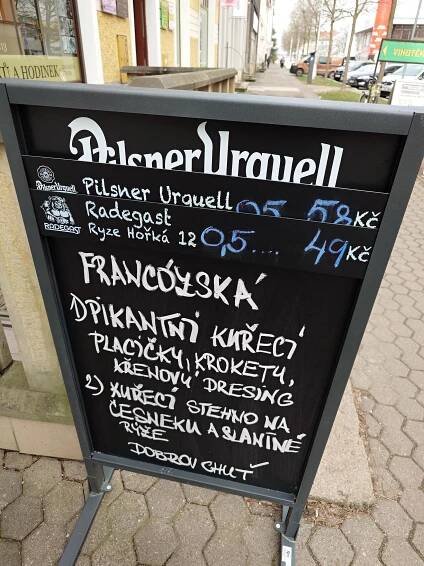 Ť A HODINEK
VINOTÉK
Pilsner Urquell
Pilsner Urquell
Pilsner Urquell 0,5 58 Kč
RADEGAST
Radegast
Ryze Hořká 12 0,5.... 49 Kč
FRANCÓUZSKÁ
1) PIKANTNÍ KUŘECÍ
PLACIČKY, KROKETY,
KŘENOVÝ DRESING
2) KUŘECÍ STEHNO NA
ČESNEKU A SLANINĚ
RÝŽE
DOBROU CHUŤ